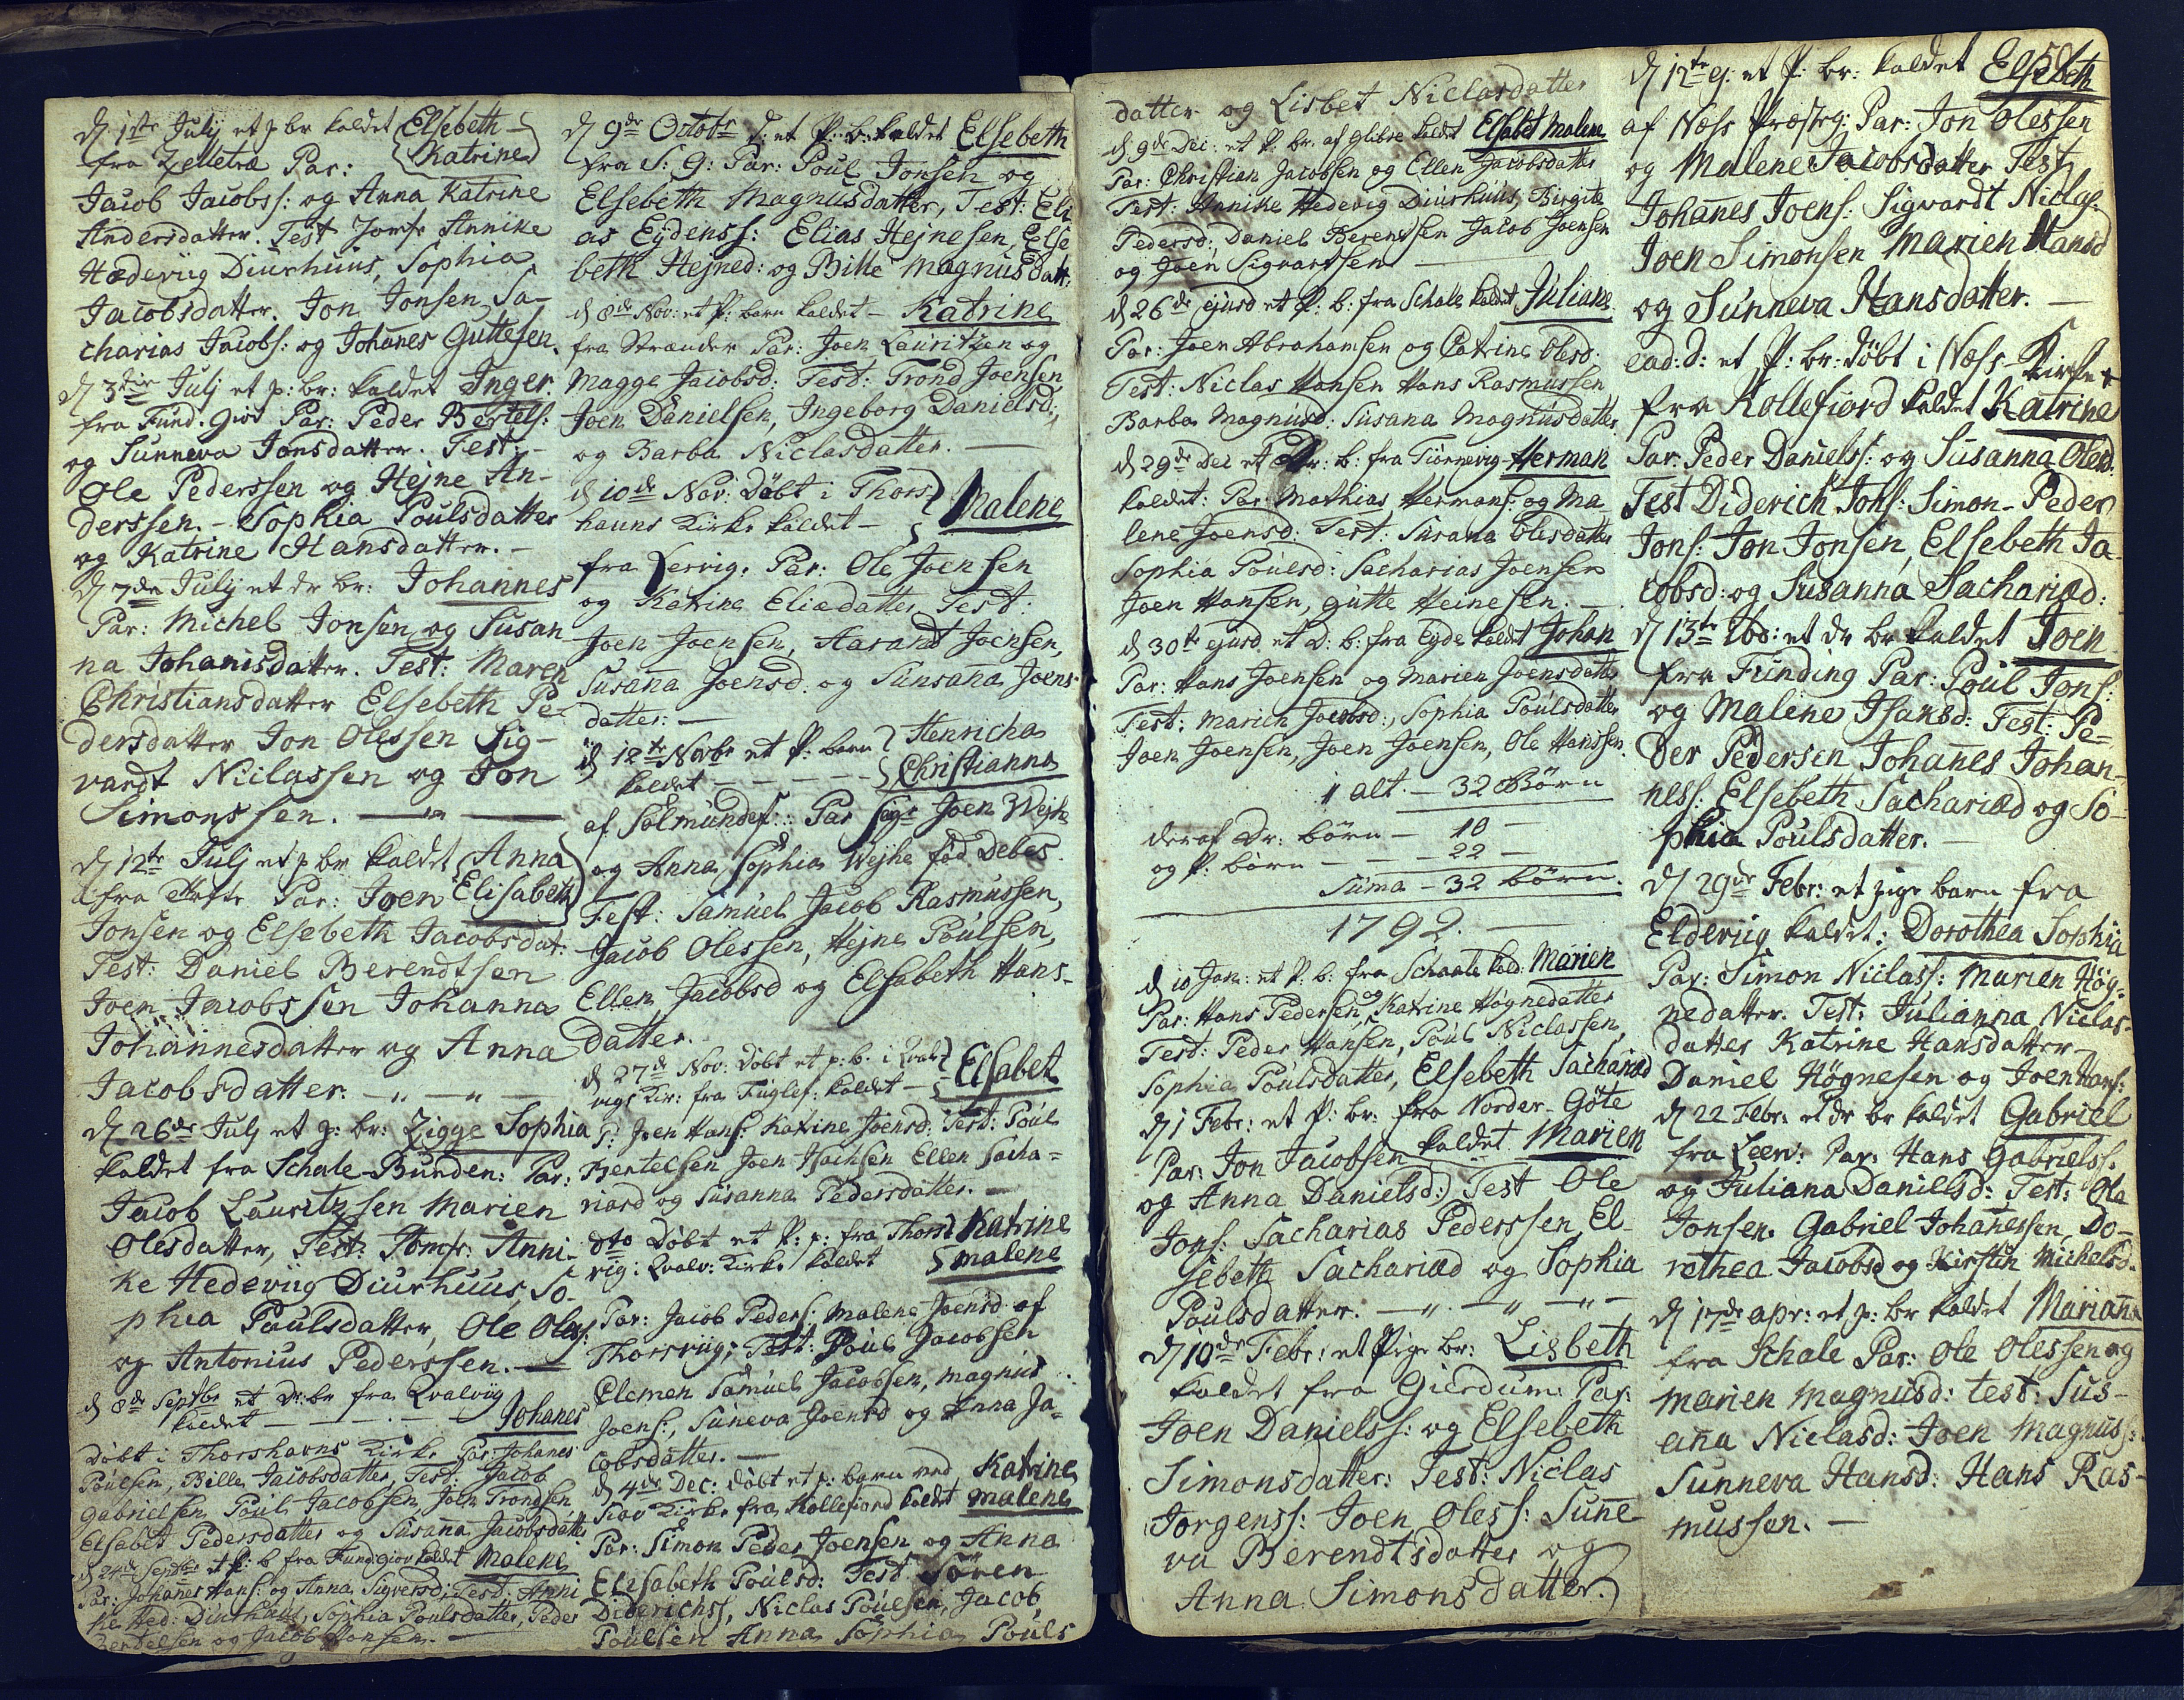 D 1ste Julj et p br kaldet Elsebeth
Katrine
fra Zelletræ Par:
Jacob Jacobss: og Anna Katrine
Andersdatter. Test Jomfr Annike
Hædeviig Diurhuus, Sophia
Jacobsdatter. Jon Jonsen, Sa-
charias Jacobs: og Johanes Guttesen.
D 3die Julj et p: br: kaldet Inger
fra Fund. giov Par: Peder Bertels:
og Sunneva Jonsdatter. Test:
Ole Pederssen og Hejne An-
derssen. - Sophia Poulsdatter
og Katrine Hansdatter. -
D 7de Julj et dr br: Johannes
Par: Michel Jonsen og Susan
na Johanisdatter. Test: Maren
Christiansdatter Elsebeth Pe-
dersdatter Jon Olessen Sig-
vardt Niclassen og Jon
Simonssen.
D 12te Julj et p br kaldet Anna
Elisabeth
fra Par: Joen
Jonsen og Elsebeth Jacobsdat:
Test: Daniel Berendtsen
Joen Jacobssen Johanna
Johannesdatter og Anna
Jacobsdatter.
D 26de Julj et p: br: Zigge Sophia
kaldet fra Schale-Bunden: Par:
Jacob Lauritzsen Marien
Olesdatter, Test: Jomfr: Anni-
ke Hedeviig Diurhuus, So-
phia Paulsdatter, Ole Oless:
og Antonius Pederssen.
d 8de Septbr et Dr: br fra Qvalviig
kaldet Johanes
Døbt i Thorshavns Kirke Par: Johanes
Poulsen, Bille Jacobsdatter, Test: Jacob
Gabrielsen Poul Jacobsen Joen Trondsen
Elsabet Pedersdatter og Susanna Jacobsdatter
d 24de Septbr et P: b fra Fund: giov kaldet Malene
Par: Johanes Hans: og Anna Sigversd: Test: Anni
ke Hed: Diurhuus, Sophia Poulsdatter, Peder
Bertelsen og Jacob Jonsen.
D 9de Octobr d: et P: b: kaldet Elsebeth
fra S: G: Par: Poul Jonsen og
Elsebeth Magnusdatter, Test: Eli
as Eydenss: Elias Hejnesen, Else
beth Hejned: og Bille Magnusdatt:
d 8de Nov: et P: barn kaldet - Katrine
fra Strænder Par: Joen Lauritzen og
Magge Jacobsd: Test: Trond Joensen,
Joen Danielsen, Ingeborg Danielsd:
og Barba Niclasdatter.
d 10de Nov: Døbt i Thors
hauns Kirke kaldet - Malene
fra Lervig. Par: Ole Joensen
og Katrine Eliædatter Test:
Joen Joensen, Harand Joensen,
Susana Joensd. og Sunsana Joens-
datter:
d 12te Novbr et P: barn Henricha
kaldet Christianna
af Solmundef: Par Sigr Joen Wejhe
og Anna Sophia Wejhe fød Debes.
Test: Samuel Jacob Rasmussen,
Jacob Olessen, Hejne Poulsen,
Ellen Jacobsd og Elsabeth Hans-
datter.
d 27de Nov: Døbt et p: b. i Qvalv
vigs Kir: fra Fuglef: kaldet - Elsabet
P: Joen Hans: Katrine Joensd: Test: Poul
Bertelsen Joen Hansen Ellen Sacha=
riasd og Susanna Pedersdatter.
dto Døbt et P: p: fra Thors Katrine
vig: Qvalv: Kirke kaldet malene
Par: Jacob Peders: Malene Joensd af
Thorsviig; Test: Poul Jacobsen
Clemen Samuel Jacobsen, Magnus
Joens:, Suneva Joensd og Anna Ja=
cobsdatter.
d 4de Dec: døbt et p: barn ved Katrine
Kirke fra Kollefiord kaldet malene
Par: Simon Peder Joensen og Anna
Elisabeth Poulsd: Test Sören
Diderichss, Niclas Poulsen, Jacob
Poulsen Anna Sophia Pouls
datter og Lisbet Niclasdatter
d 9de Dec: et P. br. af Glibre kaldt Elsabet Malene
Par: Christian Jacobsen og Ellen Jacobsdatter
Test: Annike Hedevig Diurhuus, Birgite
Pedersd:, Daniel Berendsen Jacob Joensen
og Joen Sigvartsen
d 26de ejusd et P: b: fra Schale kaldet Juliane
Par: Joen Abrahamsen og Catrine Olesd:
Test: Niclas Hansen Hans Rasmussen
Barba Magnusd: Susana Magnusdatter
d 29de Dec et Dr: b: fra Tiørnevig Herman
kaldet: Par: Mathias Hermans: og Ma
lene Joensd: Test: Susana Olesdatter
Sophia Poulsd: Sacharias Joensen
Joen Hansen, Gutte Heinesen.
d 30te ejusd. et D: b: fra Eyde kaldt Johan
Par: Hans Joensen og Marien Joensdatter
Test: Marien Jacobsd:, Sophia Poulsdatter
Joen Joensen, Joen Joensen, Ole Hanssen
i alt. - 32 Børn
deraf Dr: børn - 10 -
og P: børn - 22 -
Suma - 32 børn.
1792.
d 10 Jan: et P. b: fra Schaale kald: Marien
Par: Hans Pedersen og Katrine Høgnedatter
Test: Peder Hansen, Poul Niclassen,
Sophia Poulsdatter, Elsebeth Sachariæd
D 1 Febr: et P: br: fra Norder-Göte
Par: Jon Jacobsen kaldet Marien
og Anna Danielsd: Test Ole
Jons: Sacharias Pederssen, El-
sebeth Sachariæd og Sophia
Poulsdatter.
D 10de Febr: et Pige br: Lisbeth
kaldet fra Gierdum: Par:
Joen Danielss: og Elsebeth
Simonsdatter: Test: Niclas
Jorgenss: Joen Oless: Sune
va Berendtsdatter og
Anna Simonsdatter.
D 12te ej: et P: br: kaldet Elsebeth
af Næss Præsteg: Par: Jon Olessen
og Malene Jacobsdatter Test
Johanes Joens: Sigvardt Niclas:
Joen Simonsen Marien Hansd
og Sunneva Hansdatter.
ead: d: et P: br: døbt i Næss-Kirke
fra Kollefiord kaldet Katrine
Par: Peder Danielss: og Susanna Olesd.
Test Diderich Jons: Simon-Peder
Jons: Jon Jonsen, Elsebeth Ja-
cobsd: og Susanna Sachariæd:
D 13te et dr br kaldet Joen
fra Funding Par: Poul Jons:
og Malene Isaksd: Test: Pe=
der Pedersen Johanes Johan-
ness: Elsebeth Sachariæd og So-
phia Poulsdatter.
D 29de Febr: et pige barn fra
Elderiig kaldet: Dorothea Sophia
Par: Simon Niclass: Marien Høg-
nedatter. Test: Julianna Niclas-
datter Katrine Hansdatter
Daniel Høgnesen og Joen Hans:
D 22 Febr: et dr br kaldet Gabriel
fra Leerv: Par: Hans Gabrielss.
og Juliana Danielsd: Test: Ole
Jonsen. Gabriel Johanessen, Do-
rothea Jacobsd og Kirstin Michelsd.
D 17de apr: et p: br kaldet Mariana
fra Schale Par: Ole Olessen og
Marien Magnusd: test: Sus-
ana Niclasd: Joen Magnuss:
Sunneva Hansd: Hans Ras-
mussen.